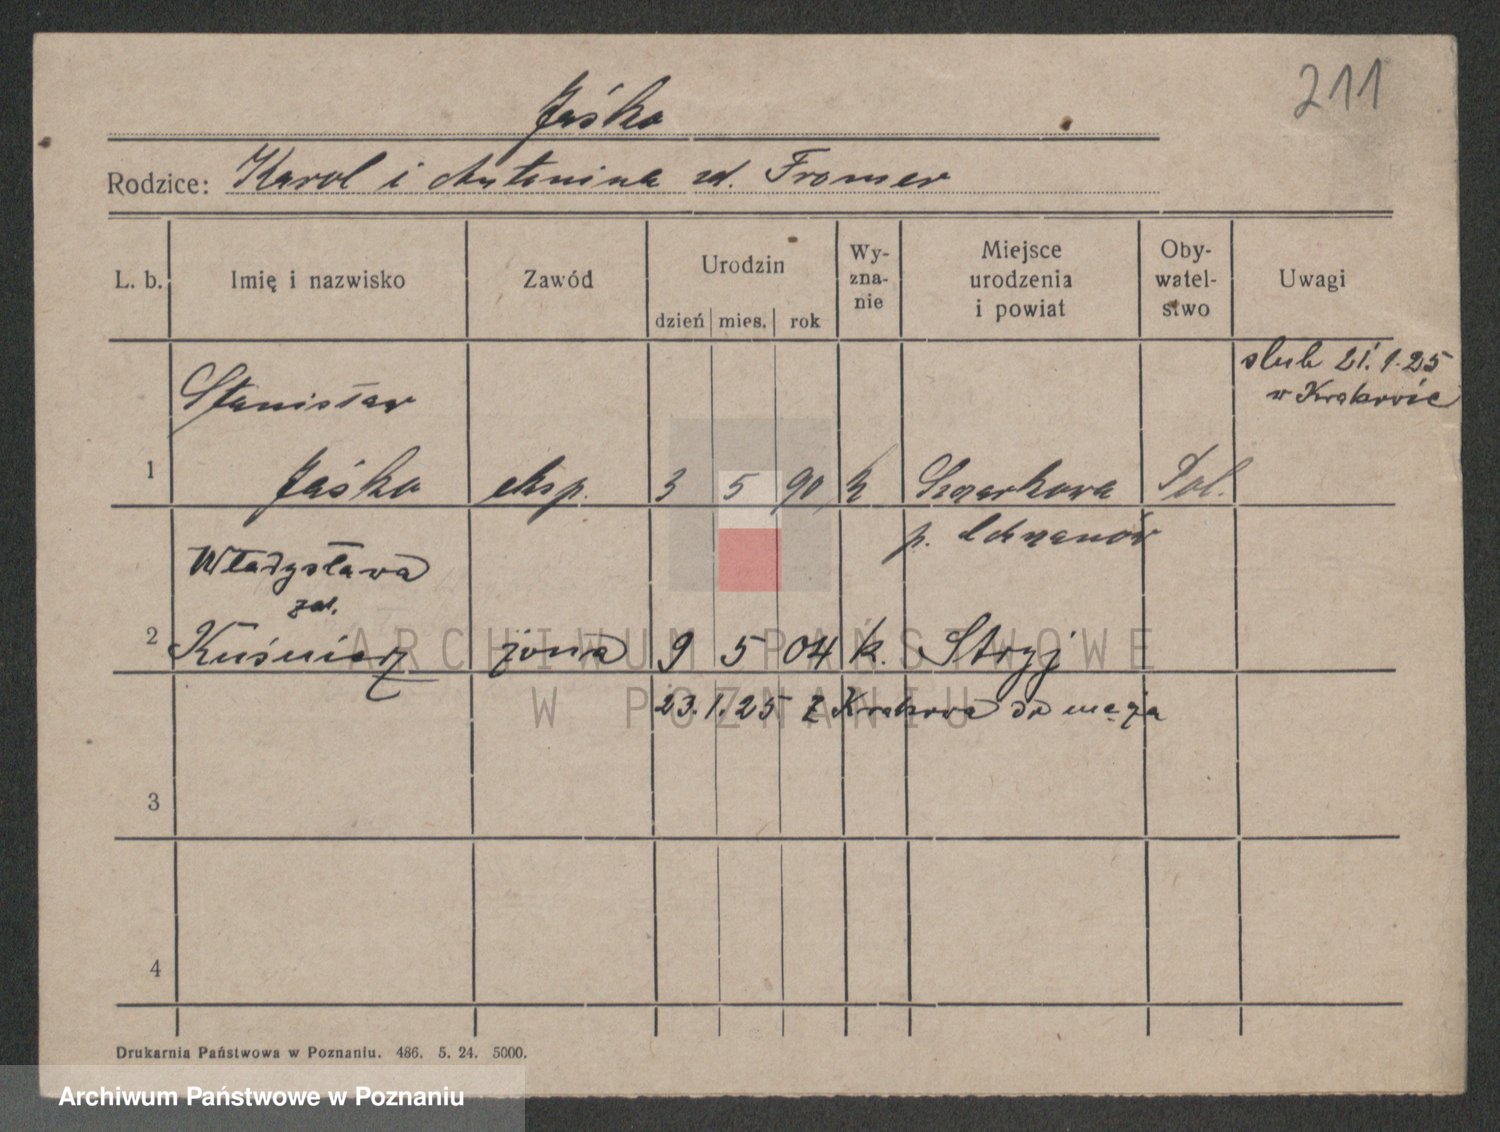 211
Jaśko
Rodzice: Karol i Antonina zd. Fromer
L. b. Imię i nazwisko Zawód Urodzin dzień mies. rok Wy-zna-nie Miejsce urodzenia i powiat Oby-watel-stwo Uwagi
ślub 21.1.25
w Krakowie
Stanisław
1 Jaśko eksp. 3 5 90 k Szarkowa Pol.
p. Chrzanów
Władysława
zd.
2 Kuśnierz żona 9 5 04 k. Stryj
23.1.25 z Krakowa do męża
3
4
Drukarnia Państwowa w Poznaniu. 486. 5. 24. 5000.
ARCHIWUM PAŃSTWOWE
W POZNANIU
Archiwum Państwowe w Poznaniu